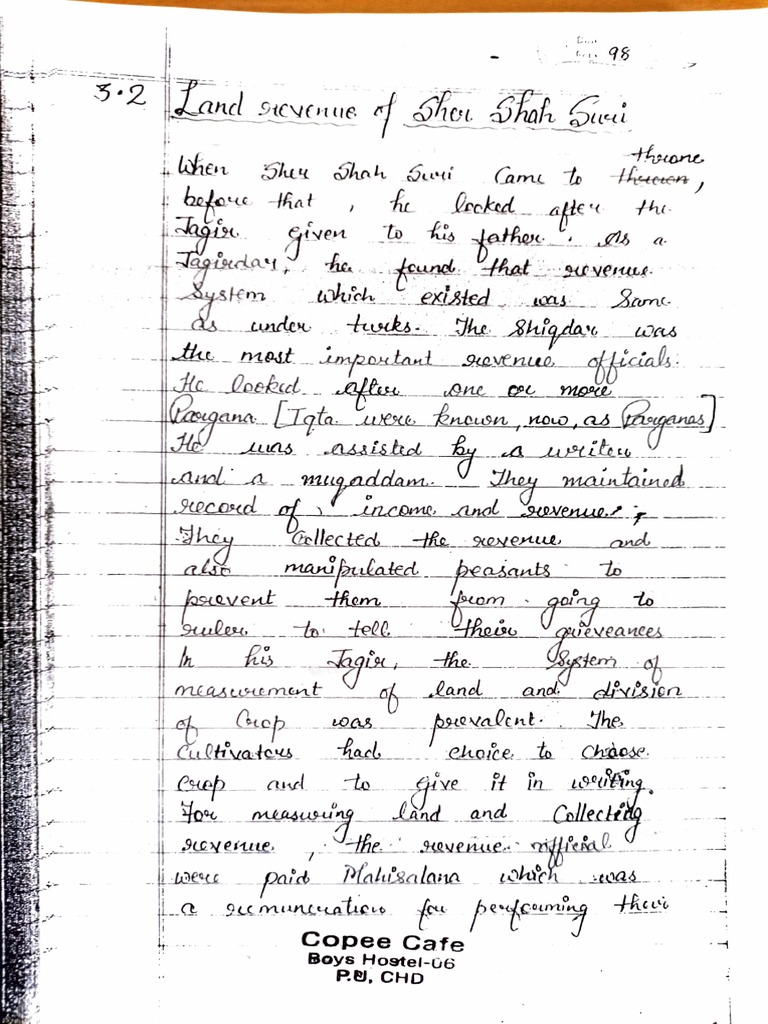 98
3.2 Land revenue of Sher Shah Suri
When Sher Shah Suri came to throne,
before that, he looked after the
Jagir given to his father. As a
Jagirdar, he found that revenue
System which existed was Same
as under turks. The Shiqdar was
the most important revenue officials.
He looked after one or more
Pargana [Iqta were known, now, as Parganas]
He was assisted by a writer
and a muqaddam. They maintained
record of income and revenue.
They collected the revenue and
also manipulated peasants to
prevent them from going to
ruler to tell their grieveances
In his Jagir, the System of
measurement of land and division
of Crop was prevalent. The
Cultivators had choice to choose
crop and to give it in writing.
For measuring land and Collecting
revenue, the revenue official
were paid Mahisalana which was
a remuneration for performing their
Copee Cafe
Boys Hostel-06
P.U, CHD